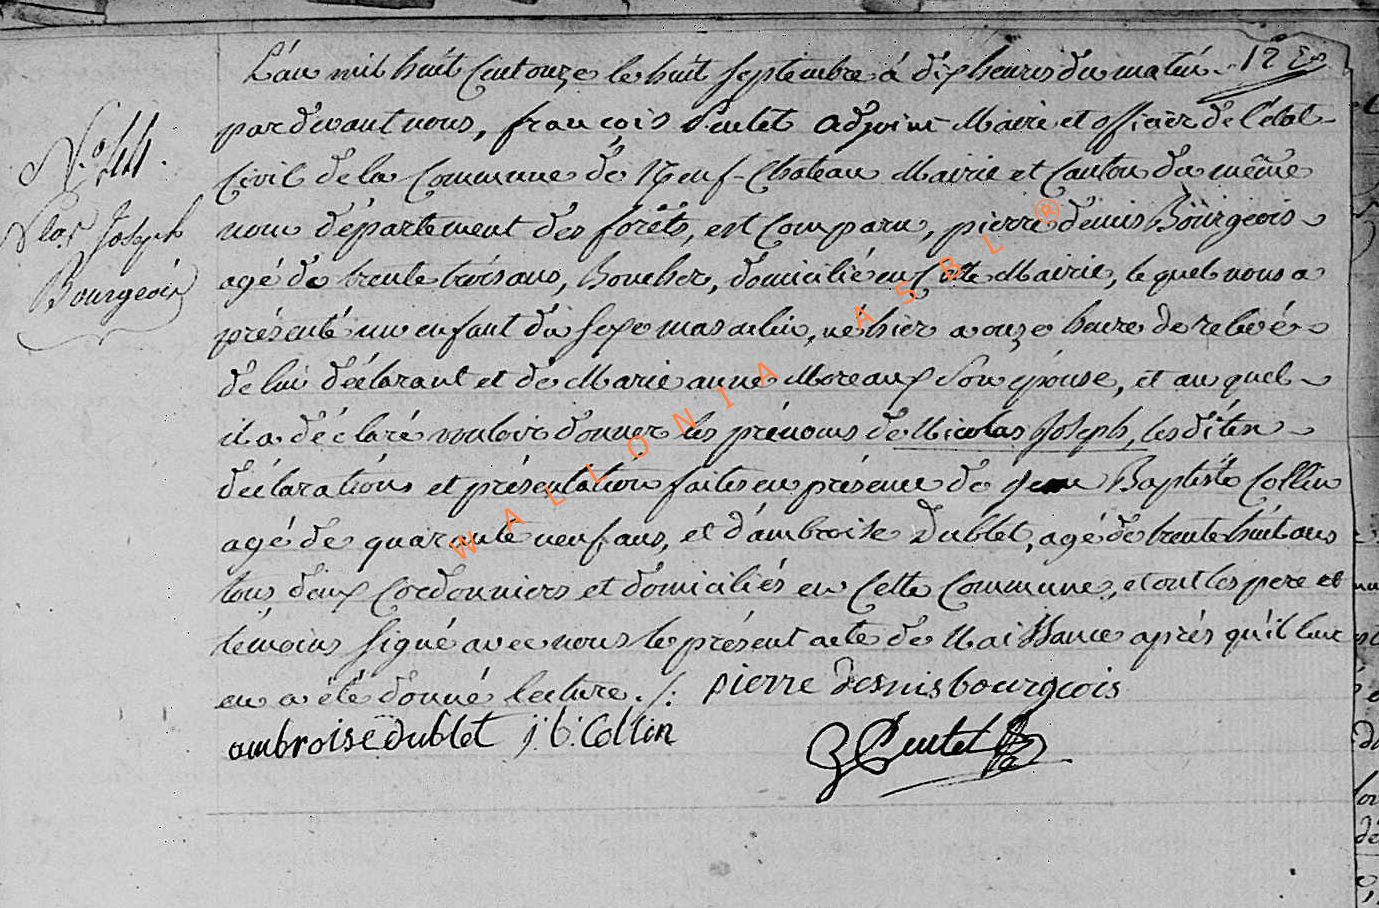 L'án mil huit Cent onze le huit septembre á dix heures du matin. 12e
par devant nous, françois Pentet adjoint Maire et officier de l'état
N.o 44.
Civil de la Commune de Neuf-Chateau Mairie et Canton du même
Nlas Joseph
Bourgeois
nom département des forêts, est Comparu, pierre denis Bourgeois
agé de trente trois ans, Boucher, domicilié en Cette Mairie, le quel nous a
présenté un enfant du sexe masculin, né hier a onze heure de relevé
de lui déclarant et de Marie anne Moreaux son épouse, et au quel
il a déclaré vouloir donner les prénoms de Nicolas Joseph, les dites
déclarations et présentation faites en présence de jean Baptiste Collin
agé de quarante neuf ans, et d'ambroise Dublet, agé de trente huit ans
tous deux Cordonniers et domiciliés en Cette Commune, et ont les pere et
témoins signé avec nous le présent acte de Naissance après qu'il leur
en a été donné lecture ./. pierre denis bourgeois
ambroise dublet j. b. Collin
Pentet
WALLONIA ASBL ®